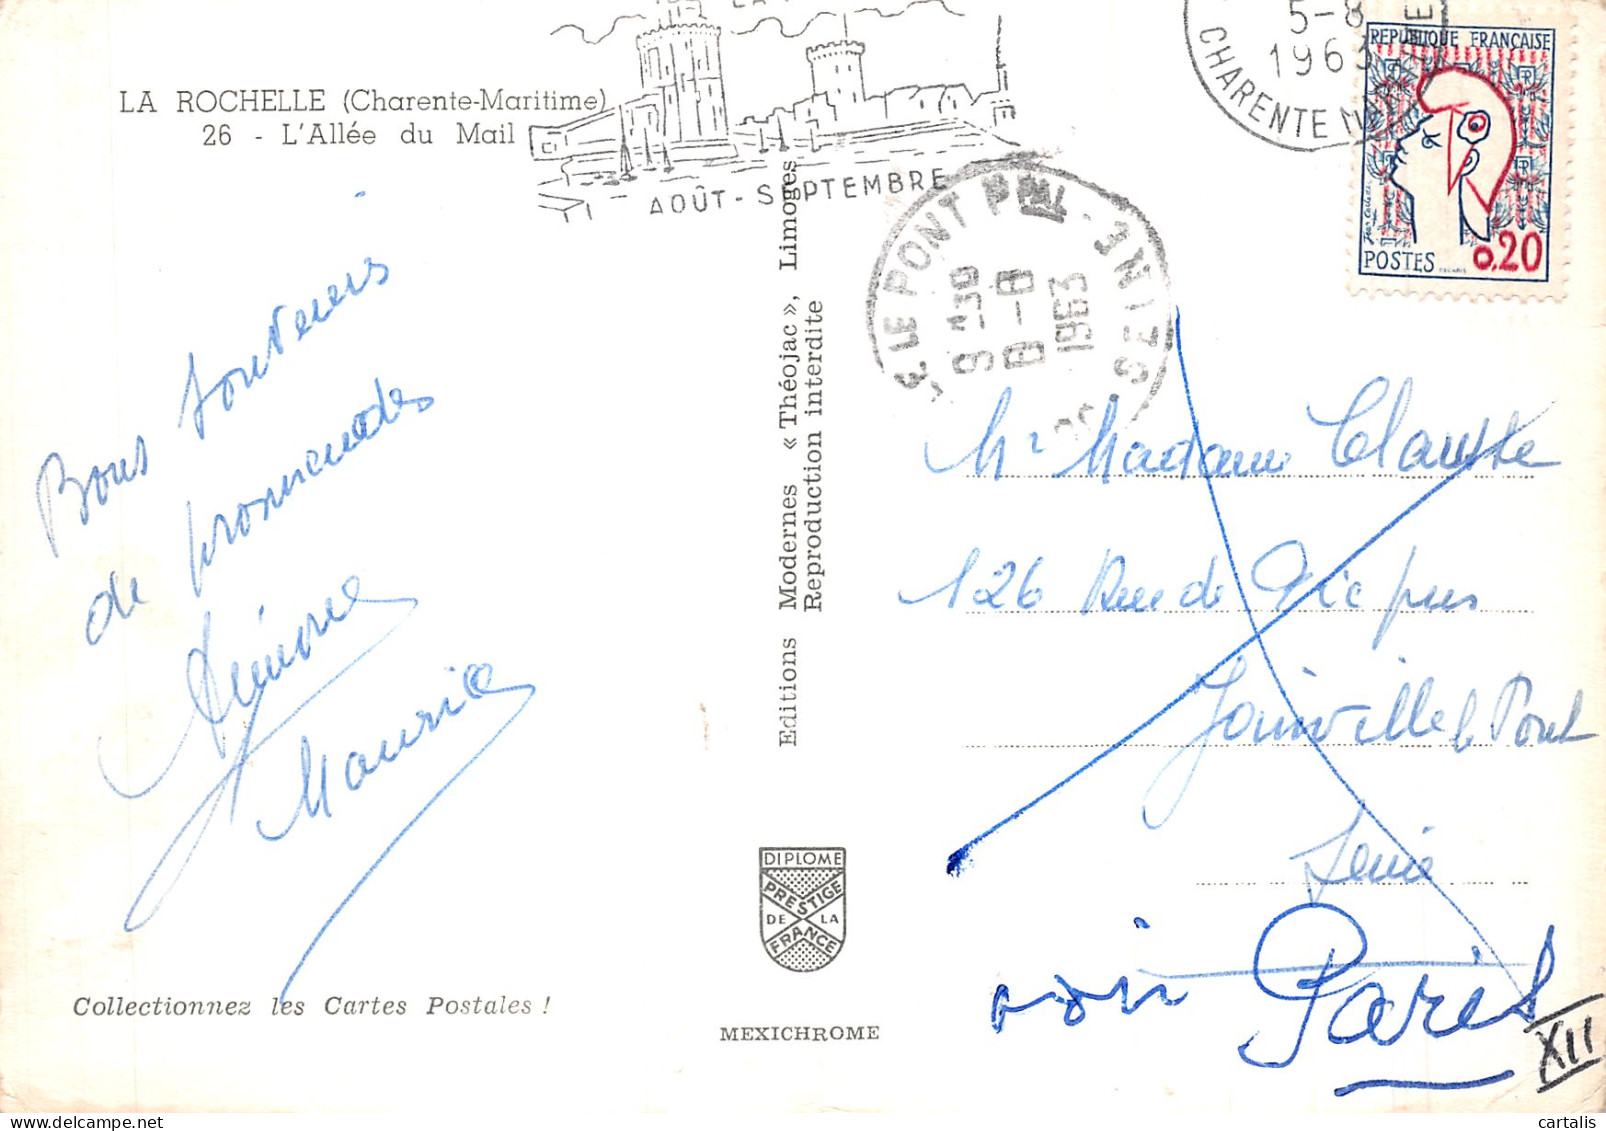 LA ROCHELLE (Charente-Maritime)
26 - L'Allée du Mail
AOÛT - SEPTEMBRE
5-8
1963
CHARENTE
REPUBLIQUE FRANÇAISE
POSTES
0,20
LE PONT
9H30
8-8
1963
SEINE
Bons souvenirs
de promenades
Maurice
Editions Modernes « Théojac », Limoges
Reproduction interdite
Mr Madame
126 Rue de Pic pus
Joinville le Pont
Seine
voir Paris
XII
DIPLOME
PRESTIGE
DE LA
FRANCE
Collectionnez les Cartes Postales !
MEXICHROME
cartalis